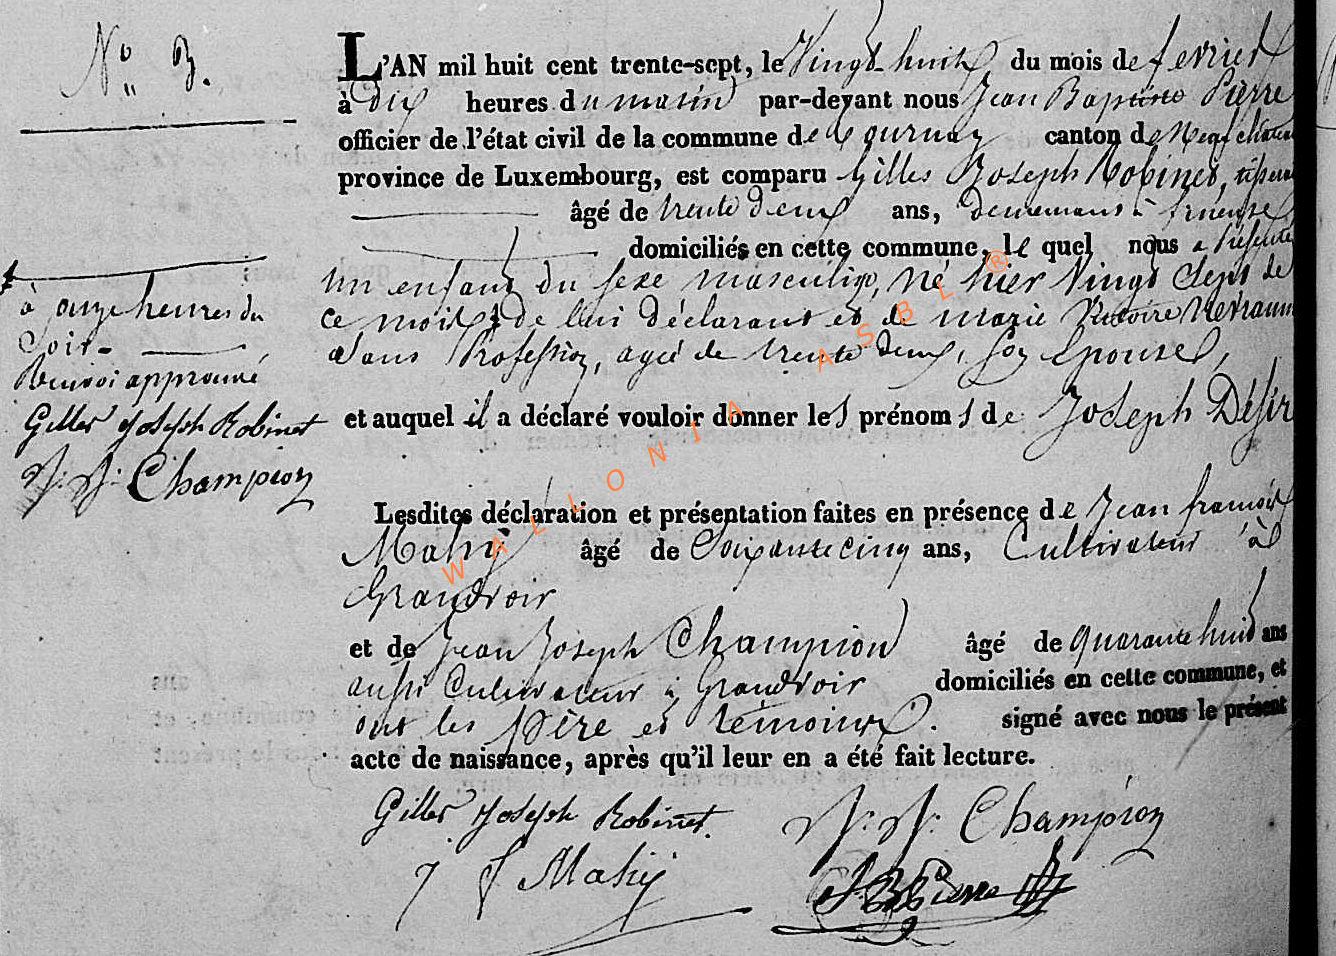 N° 3.
L'AN mil huit cent trente-sept, le Vingt-huit du mois de fevrier
à Dix heures du matin par-devant nous Jean Baptiste Pierre
officier de l'état civil de la commune de Tournay canton de Neufchateau
province de Luxembourg, est comparu Gilles Joseph Robinet,
âgé de trente deux ans, demeurant à
domiciliés en cette commune, le quel nous a présenté
un enfant du sexe masculin, né hier Vingt Sept de
ce mois de lui déclarant et de marie Victoire
Sans Profession, agée de trente deux, son Epouse,
et auquel il a déclaré vouloir donner les prénoms de Joseph Désir
à onze heures du
Soir.
Renvoi approuvé
Gilles Joseph Robinet
J. J. Champion
Lesdites déclaration et présentation faites en présence de Jean francois
Mahy âgé de Soixante cinq ans, Cultivateur à
Grandvoir
et de Jean Joseph Champion âgé de quarante huit ans
aussi Cultivateur à Grandvoir domiciliés en cette commune, et
ont les Père et témoins. signé avec nous le présent
acte de naissance, après qu'il leur en a été fait lecture.
Gilles Joseph Robinet. J. J. Champion
J f Mahy JB Pierre
WALLONIA ASBL ®